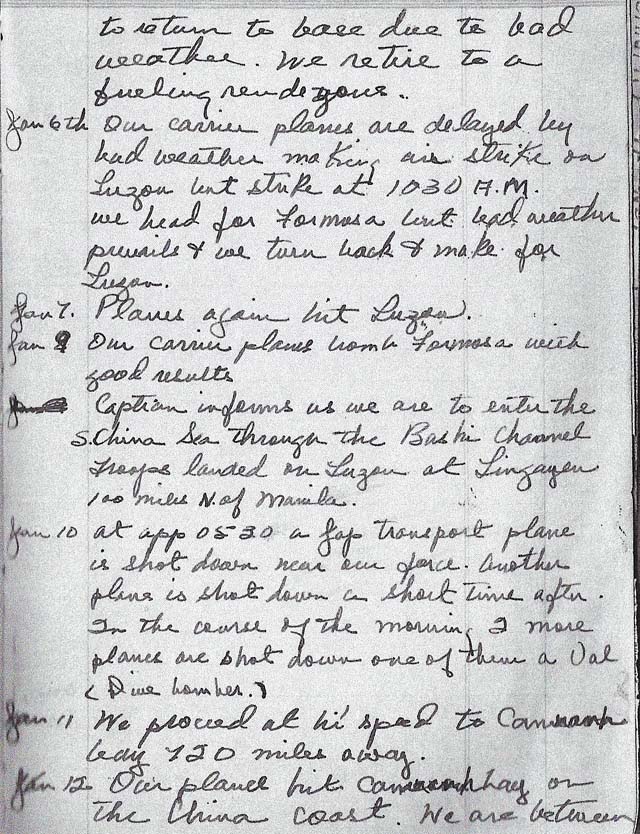 to return to base due to bad
weather. We retire to a
fueling rendezvous..
Jan 6th Our carrier planes are delayed by
bad weather making air strike on
Luzon but strike at 1030 A.M.
we head for Formosa but bad weather
prevails & we turn back & make for
Luzon.
Jan 7. Planes again hit Luzon.
Jan 9 Our carrier planes bomb Formosa with
good results
Captian informs us we are to enter the
S. China Sea through the Bashi Channel
Troops landed on Luzon at Lingayen
100 miles N. of Manila.
Jan 10 at app 0530 a Jap transport plane
is shot down near our force. Another
plane is shot down a short time after.
In the course of the morning 2 more
planes are shot down one of them a Val
(Dive bomber.)
Jan 11 We proceed at hi' speed to
bay 720 miles away.
Jan 12 Our planes hit bay on
the China coast. We are between